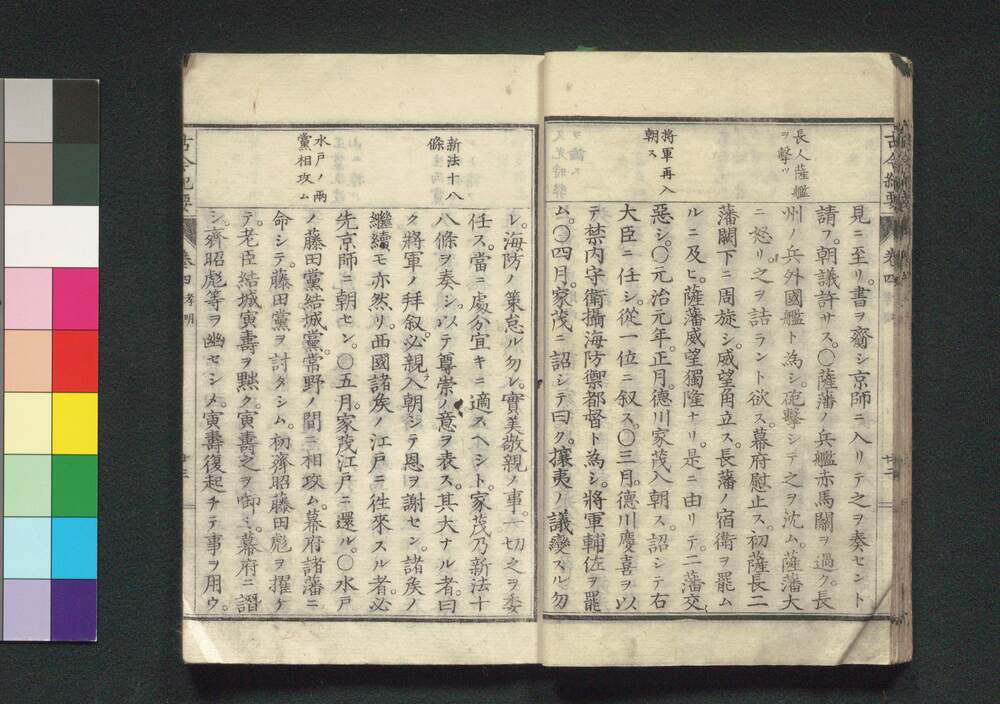 古今紀要 卷四
長人薩艦
ヲ擊ツ
將軍再入
朝ス
見ニ至リ。書ヲ齎シ京師ニ入リテ之ヲ奏セント
請フ。朝議許サス。〇薩藩ノ兵艦赤馬關ヲ過ク。長
州ノ兵外國艦ト為シ。砲擊シテ之ヲ沈ム。薩藩大
ニ怒リ。之ヲ詰ラント欲ス。幕府慰止ス。初薩長二
藩闕下ニ周旋シ。威望角立ス。長藩ノ宿衛ヲ罷ム
ルニ及ヒ。薩藩威望獨隆ナリ。是ニ由リテ二藩交
惡シ。〇元治元年正月。德川家茂入朝ス。詔シテ右
大臣ニ任シ。從一位ニ叙ス。〇三月。德川慶喜ヲ以
テ禁内守衛攝海防禦都督ト為シ。將軍輔佐ヲ罷
ム。〇四月。家茂ニ詔シテ曰ク。攘夷ノ議變スル勿
新法十八
條
水戸ノ兩
黨相攻ム
レ。海防ノ策怠ル勿レ。實美敬親ノ事。一切之ヲ委
任ス。當ニ處分宜キニ適スヘシト。家茂乃新法十
八條ヲ奏シ。以テ尊崇ノ意ヲ表ス。其大ナル者。曰
ク將軍ノ拜叙。必親ラ入朝シテ恩ヲ謝セン。諸矦ノ
繼續モ亦然リ。西國諸矦ノ江戸ニ往來スル者。必
先京師ニ朝セン。〇五月。家茂江戸ニ還ル。〇水戸
ノ藤田黨結城黨。常野ノ間ニ相攻ム。幕府諸藩ニ
命シテ。藤田黨ヲ討タシム。初齊昭藤田彪ヲ擢ケ
テ。老臣結城寅壽ヲ黜ク。寅壽之ヲ御ミ。幕府ニ譖
シ。齊昭彪等ヲ幽セシメ。寅壽復起チテ事ヲ用ウ。
古今紀要 卷四 孝明 廿三